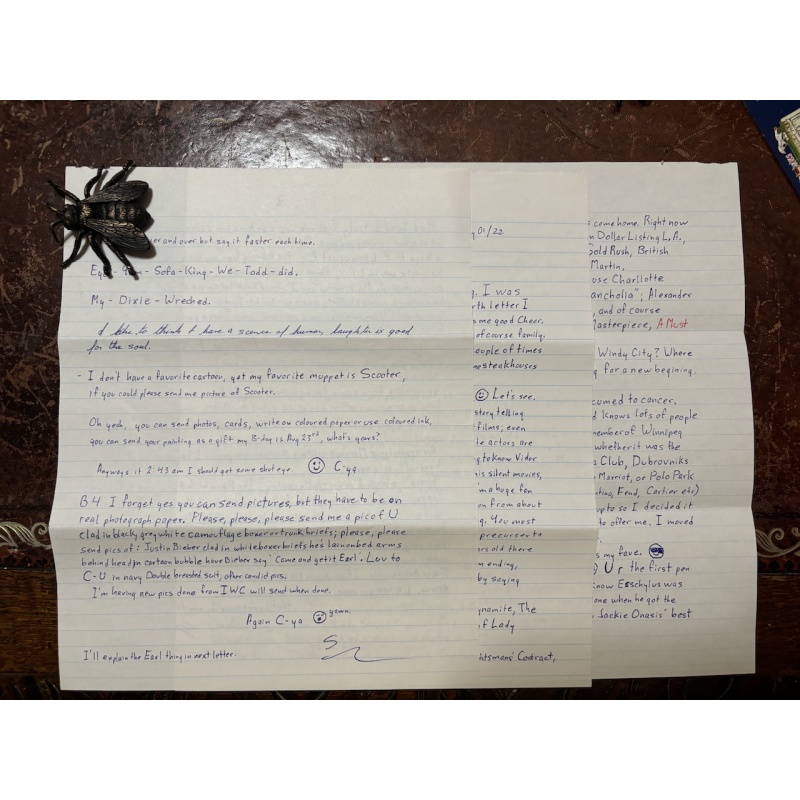 er and over but say it faster each time.
- Sofa - King - We - Todd - did.
My - Dixie - Wreched.
I like to think I have a scence of humor, laughter is good
for the soul.
- I don't have a favorite cartoon, yet my favorite muppet is Scooter,
if you could please send me picture of Scooter.
Oh yeah, you can send photos, cards, write on coloured paper or use coloured ink,
you can send your painting as a gift my B-day is Aug 23rd, what's yours?
Anyways it 2:43 am I should get some shut eye. C-ya
B4 I forget yes you can send pictures, but they have to be on
real photograph paper. Please, please, please send me a pic of U
clad in black, grey white camouflage boxer or trunk briefs; please, please
send pics of: Justin Bieber clad in white boxer briefs he's lain on bed arms
behind head in cartoon bubble have Bieber say: Come and get it Earl. Luv to
C-U in navy Double breasted suit, other candid pics.
I'm having new pics done from IWC will send when done.
Again C-ya yawn.
I'll explain the Earl thing in next letter.
01/22
. I was
th letter I
me good Cheer.
of course family.
ouple of times
steakhouses
Let's see.
story telling
films; even
te actors are
to know Vidor
is silent movies,
m a huge fan
on from about
g. You must
precursor to
rs old there
n ending,
by saying
ynamite, The
f Lady
htsmans' Contract,
come home. Right now
n Dollar Listing L.A.,
Gold Rush, British
Martin,
use Charllotte
ancholia"; Alexander
, and of course
asterpiece, A Must
Windy City? Where
g for a new begining.
cumed to cancer.
d knows lots of people
member of Winnipeg
whether it was the
Club, Dubrovniks
Marriot, or Polo Park
, Fend, Cartier etc)
up to so I decided it
to offer me. I moved
s my fave.
U r the first pen
now Esschylus was
one when he got the
, Jackie Onasis' best